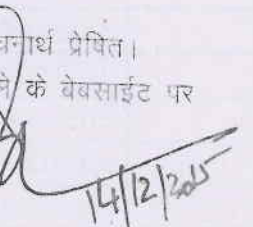 प्रेषित।
के बेबसाईट पर
14/12/2015